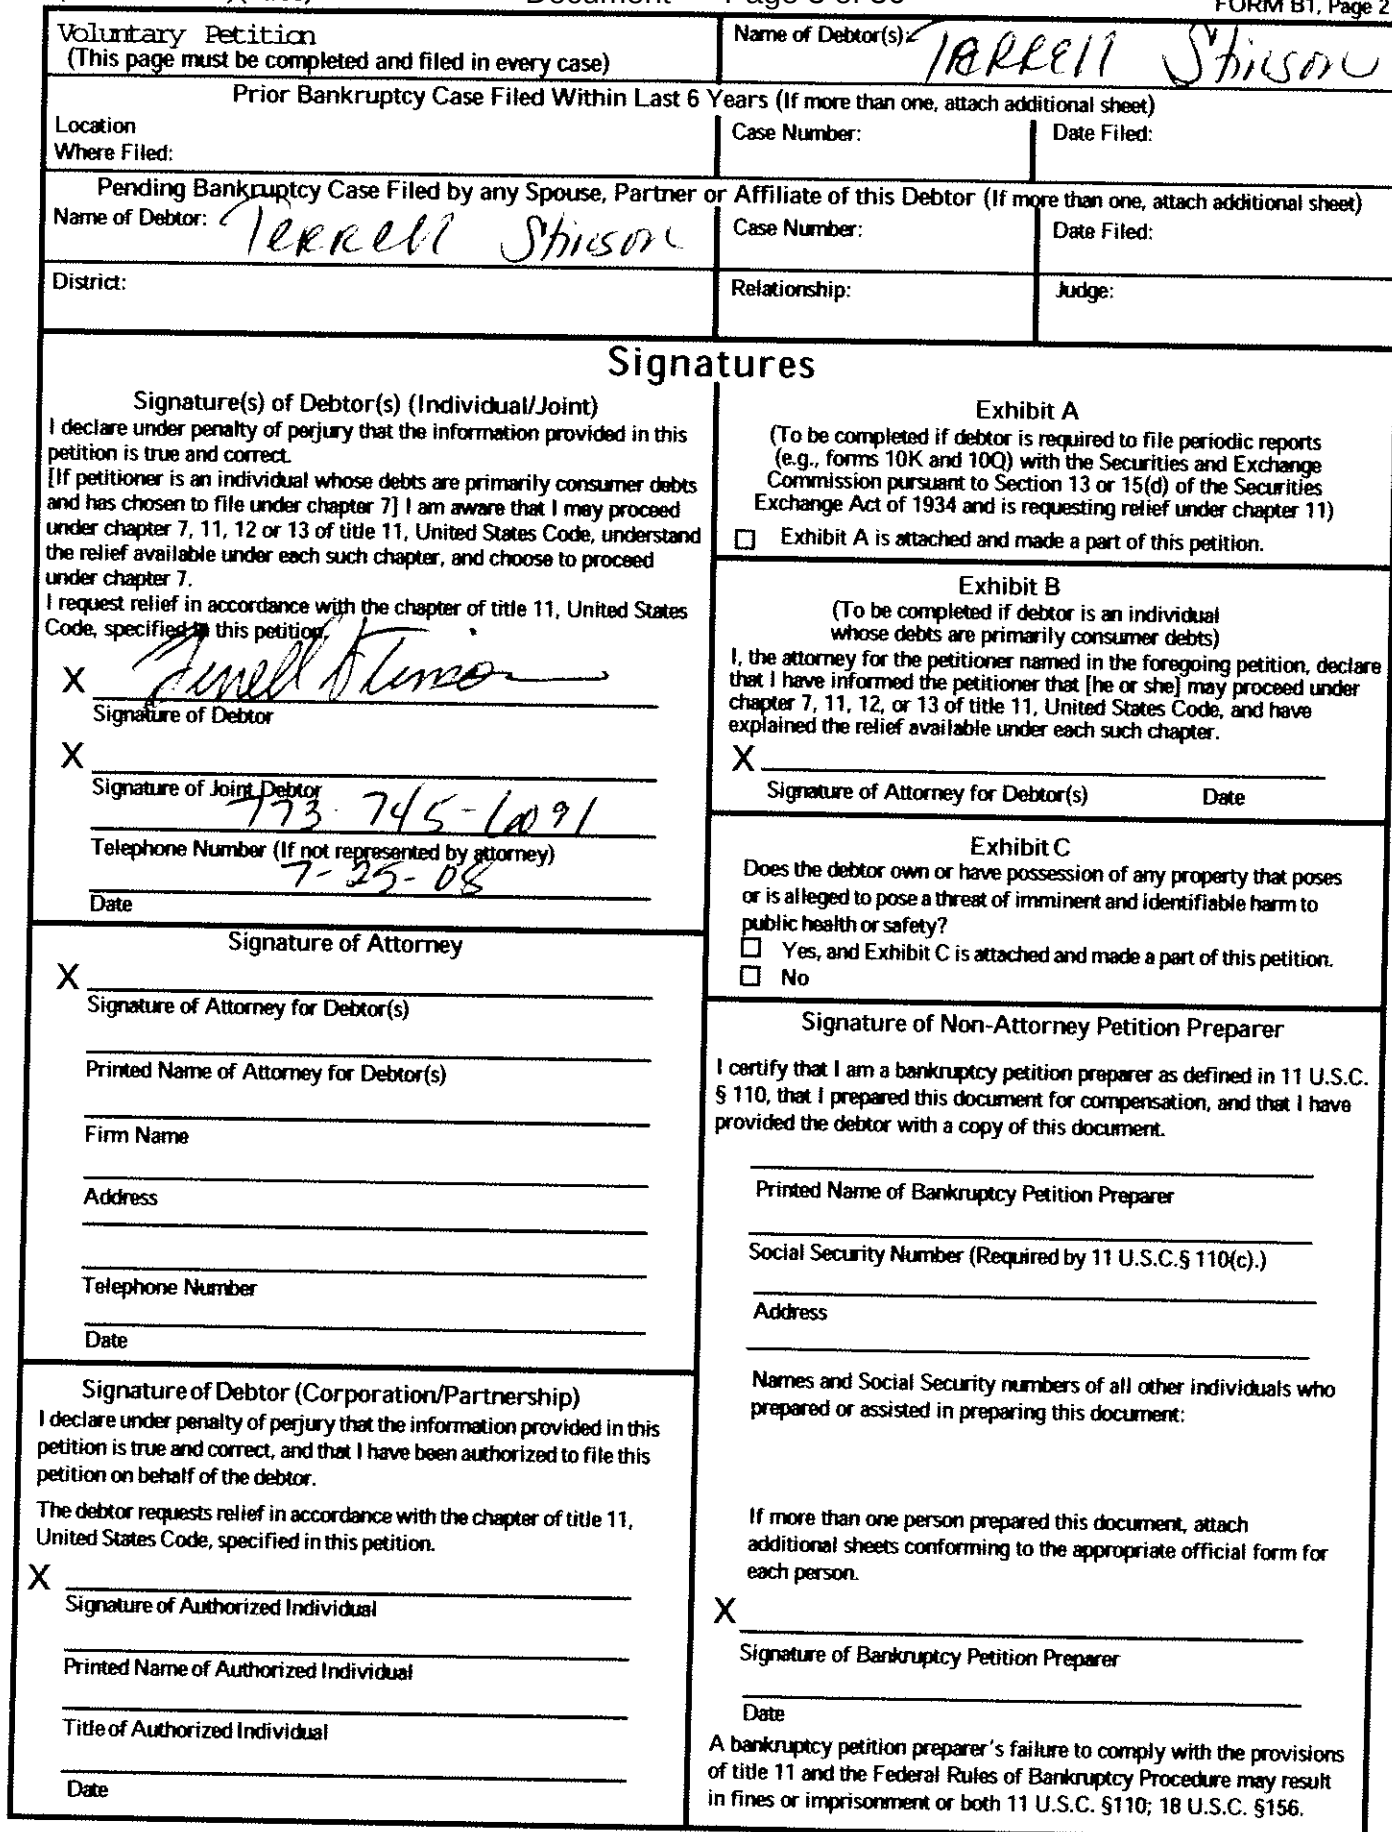 Document Page 3 of 36
FORM B1, Page 2
Voluntary Petition
(This page must be completed and filed in every case)
Name of Debtor(s):
TERRELL Stinson
Prior Bankruptcy Case Filed Within Last 6 Years (If more than one, attach additional sheet)
Location
Where Filed:
Case Number:
Date Filed:
Pending Bankruptcy Case Filed by any Spouse, Partner or Affiliate of this Debtor (If more than one, attach additional sheet)
Name of Debtor: TERRELL Stinson
Case Number:
Date Filed:
District:
Relationship:
Judge:
Signatures
Signature(s) of Debtor(s) (Individual/Joint)
I declare under penalty of perjury that the information provided in this
petition is true and correct.
[If petitioner is an individual whose debts are primarily consumer debts
and has chosen to file under chapter 7] I am aware that I may proceed
under chapter 7, 11, 12 or 13 of title 11, United States Code, understand
the relief available under each such chapter, and choose to proceed
under chapter 7.
I request relief in accordance with the chapter of title 11, United States
Code, specified in this petition.
X Terrell Stinson
Signature of Debtor
X
Signature of Joint Debtor
773-745-6091
Telephone Number (If not represented by attorney)
7-25-08
Date
Signature of Attorney
X
Signature of Attorney for Debtor(s)
Printed Name of Attorney for Debtor(s)
Firm Name
Address
Telephone Number
Date
Signature of Debtor (Corporation/Partnership)
I declare under penalty of perjury that the information provided in this
petition is true and correct, and that I have been authorized to file this
petition on behalf of the debtor.
The debtor requests relief in accordance with the chapter of title 11,
United States Code, specified in this petition.
X
Signature of Authorized Individual
Printed Name of Authorized Individual
Title of Authorized Individual
Date
Exhibit A
(To be completed if debtor is required to file periodic reports
(e.g., forms 10K and 10Q) with the Securities and Exchange
Commission pursuant to Section 13 or 15(d) of the Securities
Exchange Act of 1934 and is requesting relief under chapter 11)
☐ Exhibit A is attached and made a part of this petition.
Exhibit B
(To be completed if debtor is an individual
whose debts are primarily consumer debts)
I, the attorney for the petitioner named in the foregoing petition, declare
that I have informed the petitioner that [he or she] may proceed under
chapter 7, 11, 12, or 13 of title 11, United States Code, and have
explained the relief available under each such chapter.
X
Signature of Attorney for Debtor(s) Date
Exhibit C
Does the debtor own or have possession of any property that poses
or is alleged to pose a threat of imminent and identifiable harm to
public health or safety?
☐ Yes, and Exhibit C is attached and made a part of this petition.
☐ No
Signature of Non-Attorney Petition Preparer
I certify that I am a bankruptcy petition preparer as defined in 11 U.S.C.
§ 110, that I prepared this document for compensation, and that I have
provided the debtor with a copy of this document.
Printed Name of Bankruptcy Petition Preparer
Social Security Number (Required by 11 U.S.C.§ 110(c).)
Address
Names and Social Security numbers of all other individuals who
prepared or assisted in preparing this document:
If more than one person prepared this document, attach
additional sheets conforming to the appropriate official form for
each person.
X
Signature of Bankruptcy Petition Preparer
Date
A bankruptcy petition preparer's failure to comply with the provisions
of title 11 and the Federal Rules of Bankruptcy Procedure may result
in fines or imprisonment or both 11 U.S.C. §110; 18 U.S.C. §156.